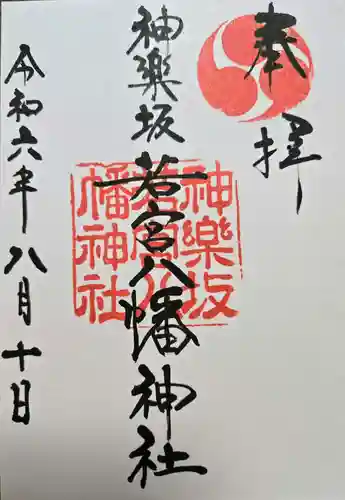 奉拝
神楽坂若宮八幡神社
神樂坂
若宮八
幡神社
令和六年八月十日